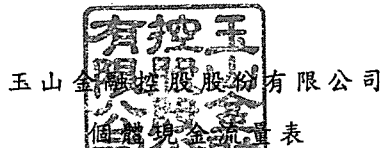 玉山金融控股股份有限公司
個體現金流量表